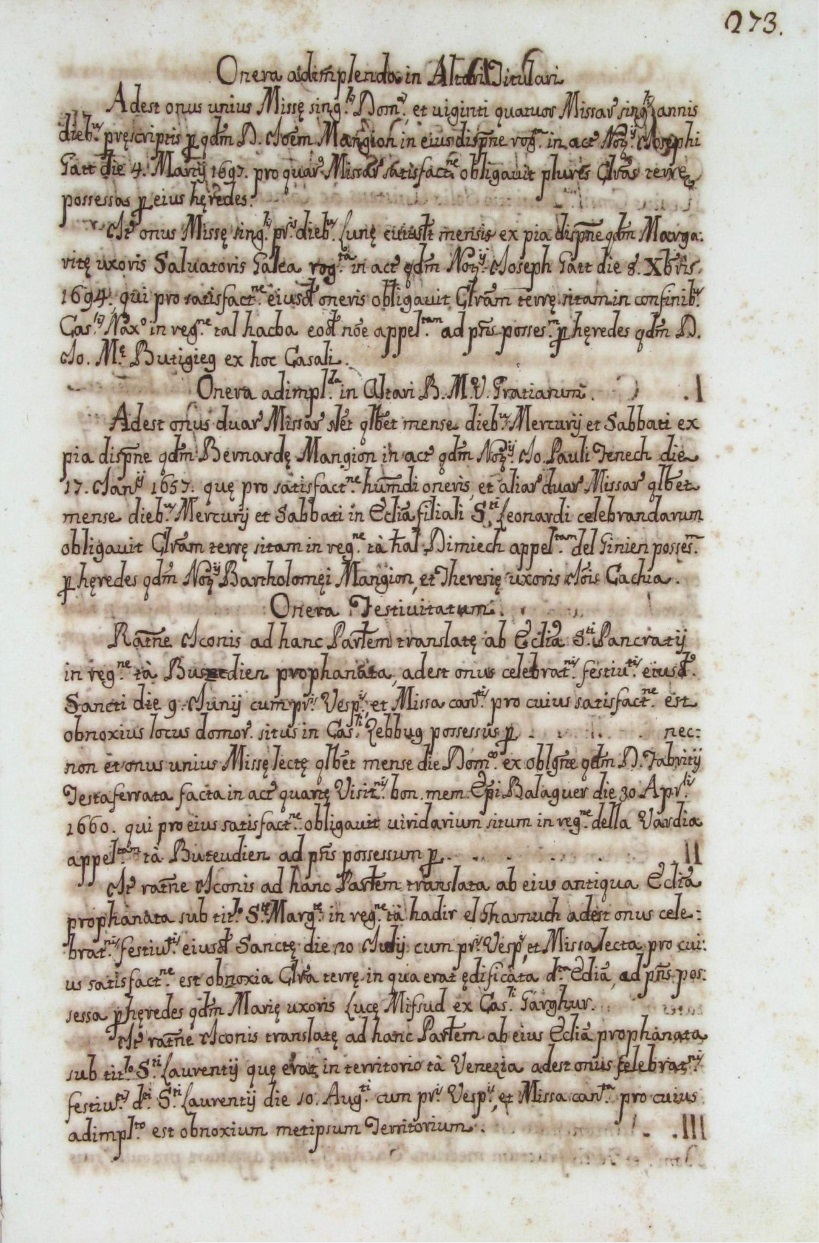 273.
Onera adimplenda in Altari Titulari
Adest onus unius Missę sing.ḷịṣ Dom.ⁱˢ et uiginti quatuor Missar. sing.ˢ annis
dieb.ˢ pręscriptis ꝑ qdm̃ D. Joem̃ Mangion in eius dispñe rog.ᵗᵃ in act.ˢ Noṭ.ʲʲ Josephi
Gatt die 4. Martij 1697. pro quar. Missar. satisfact.ⁿᵉ obligauit plures Cĺras terrę
possessas ꝑ eius hęredes.
It. onus Missę sing. pr.ⁱˢ dieb.ˢ Lunę cuiuslt mensis ex pia dispñe qdm̃ Marga:
ritę uxoris Saluatoris Galea rog.ᵗᵃ in act.ˢ qdm̃ Not.ʲʲ Joseph Gatt die 8. Xbris
1694. qui pro satisfact.ⁿᵉ eiusd. oneris obligauit Clrãm terrę sitam in confinib.ˢ
Cas.ˡⁱˢ Nax.º in reg.ⁿᵉ tal hacba eod. nõe appel.ᵗᵃᵐ ad pñs posses.ᵐ ꝑ hęredes qdm̃ D.
Jo. M.ᵉ Butigieg ex hoc Casali.
Onera adimpl.ᵈᵃ in Altari B. M. V. Gratiarum. I
Adest onus duar. Missar. slet qlbet mense dieb.ˢ Mercurij et Sabbati ex
pia dispñe qdm̃ Bernardę Mangion in act.ˢ qdm̃ Not.ʲʲ Jo. Pauli Fenech die
17. Jan.ʲʲ 1657. quę pro satisfact.ⁿᵉ humdi oneris, et aliar. duar. Missar. qlbet
mense dieb.ˢ Mercurij et Sabbati in Eclia filiali S.ᵗⁱ Leonardi celebrandarum
obligauit Clrãm terrę sitam in reg.ⁿᵉ tà hal Dimiech appel.ᵗᵃᵐ del Ginien posses.ᵐ
ꝑ hęredes qdm̃ Not.ʲʲ Bartholomęi Mangion, et Theresię uxoris Jois Cachia.
Onera Festiuitatum.
Ratñe Iconis ad hanc Parlem translatę ab Eclia S.ᵗⁱ Pancratij
in reg.ⁿᵉ tà dien prophanata, adest onus celebrat.ⁿⁱˢ festiu.ᵗⁱˢ eiusd.
Sancti die 9. Junij cum pr.ⁱˢ Vesp.ⁱˢ, et Missa cant.ᵗᵃ pro cuius satisfact.ⁿᵉ est
obnoxius locus domor. situs in Cas.ˡⁱ Zebbug possessus ꝑ . . . . nec:
non et onus unius Missę lectę qlbet mense die Dom.ᶜᵒ ex oblgñe qdm̃ D. Fabritij
Testaferrata facta in act.ˢ quartę Visit.ⁿⁱˢ bon. mem. Epi Balaguer die 30. Apr.ˡⁱˢ
1660. qui pro eius satisfact.ⁿᵉ obligauit uiridarium situm in reg.ⁿᵉ della Vardia
appel.ᵗᵘᵐ tà Buteudien ad pñs possessum ꝑ . . . . . II
It. ratñe Iconis ad hanc Parlem translata ab eius antiqua Eclia
prophanata sub tit.ˡᵒ S.ᵗę Marg.ᵗę in reg.ⁿᵉ tà hadir el Gharnuch adest onus cele:
brat.ⁿⁱˢ festiu.ᵗⁱˢ eiusd. Sanctę die 20 Julij cum pr.ⁱˢ Vesp.ⁱˢ, et Missa lecta pro cui:
us satisfact.ⁿᵉ est obnoxia Clra terrę in qua erat ędificata d.ᵗᵃ Eclia, ad pñs pos:
sessa ꝑ hęredes qdm̃ Marię uxoris Lucę Mifsud ex Cas.ˡⁱ Garghur.
It. ratñe Iconis translatę ad hanc Parlem ab eius Eclia prophanata
sub tit.ˡᵒ S.ᵗⁱ Laurentij quę erat in territorio tà Venezia adest onus celebrat.ⁿⁱˢ
festiu.ᵗⁱˢ d.ᵗⁱ S.ᵗⁱ Laurentij die 10. Aug.ᵗⁱ cum pr.ⁱˢ Vesp.ⁱˢ, et Missa cant.ᵗᵃ pro cuius
adimpl.ᵗᵒ est obnoxium metipsum Territorium. III